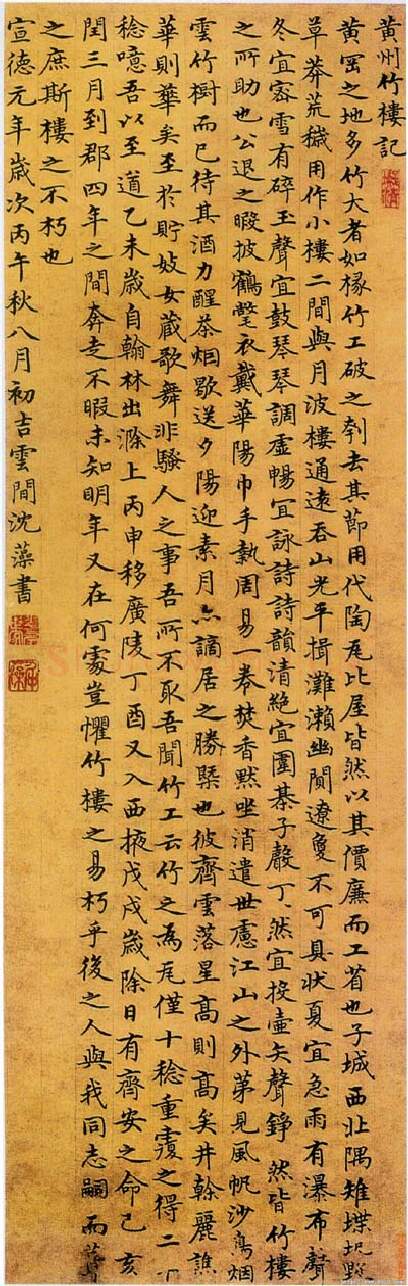 黄州竹樓記
黄罡之地多竹大者如椽竹工破之刳去其節用代陶瓦比屋皆然以其價廉而工省也子城西北隅雉堞圮毁
草莽荒穢用作小樓二間與月波樓通遠吞山光平揖灘瀬幽闃遼夐不可具狀夏宜急雨有瀑布聲
冬宜密雪有碎玉聲宜鼓琴琴調虚暢宜詠詩詩韻清絶宜圍棊子聲丁丶然宜投壺矢聲錚丶然皆竹樓
之所助也公退之暇披鶴氅衣戴華陽巾手執周易一卷焚香默坐消遣世慮江山之外第見風帆沙鳥烟
雲竹樹而已待其酒力醒茶烟歇送夕陽迎素月亦謫居之勝槩也彼齊雲落星高則高矣井榦麗譙
華則華矣至於貯妓女藏歌舞非騷人之事吾所不取吾聞竹工云竹之為瓦僅十稔重覆之得二十
稔噫吾以至道乙未歲自翰林出滁上丙申移廣陵丁酉又入西掖戊戌歲除日有齊安之命己亥
閏三月到郡四年之間奔走不暇未知明年又在何處豈懼竹樓之易朽乎後之人與我同志嗣而葺
之庶斯樓之不朽也
宣德元年歲次丙午秋八月初吉雲間沈藻書